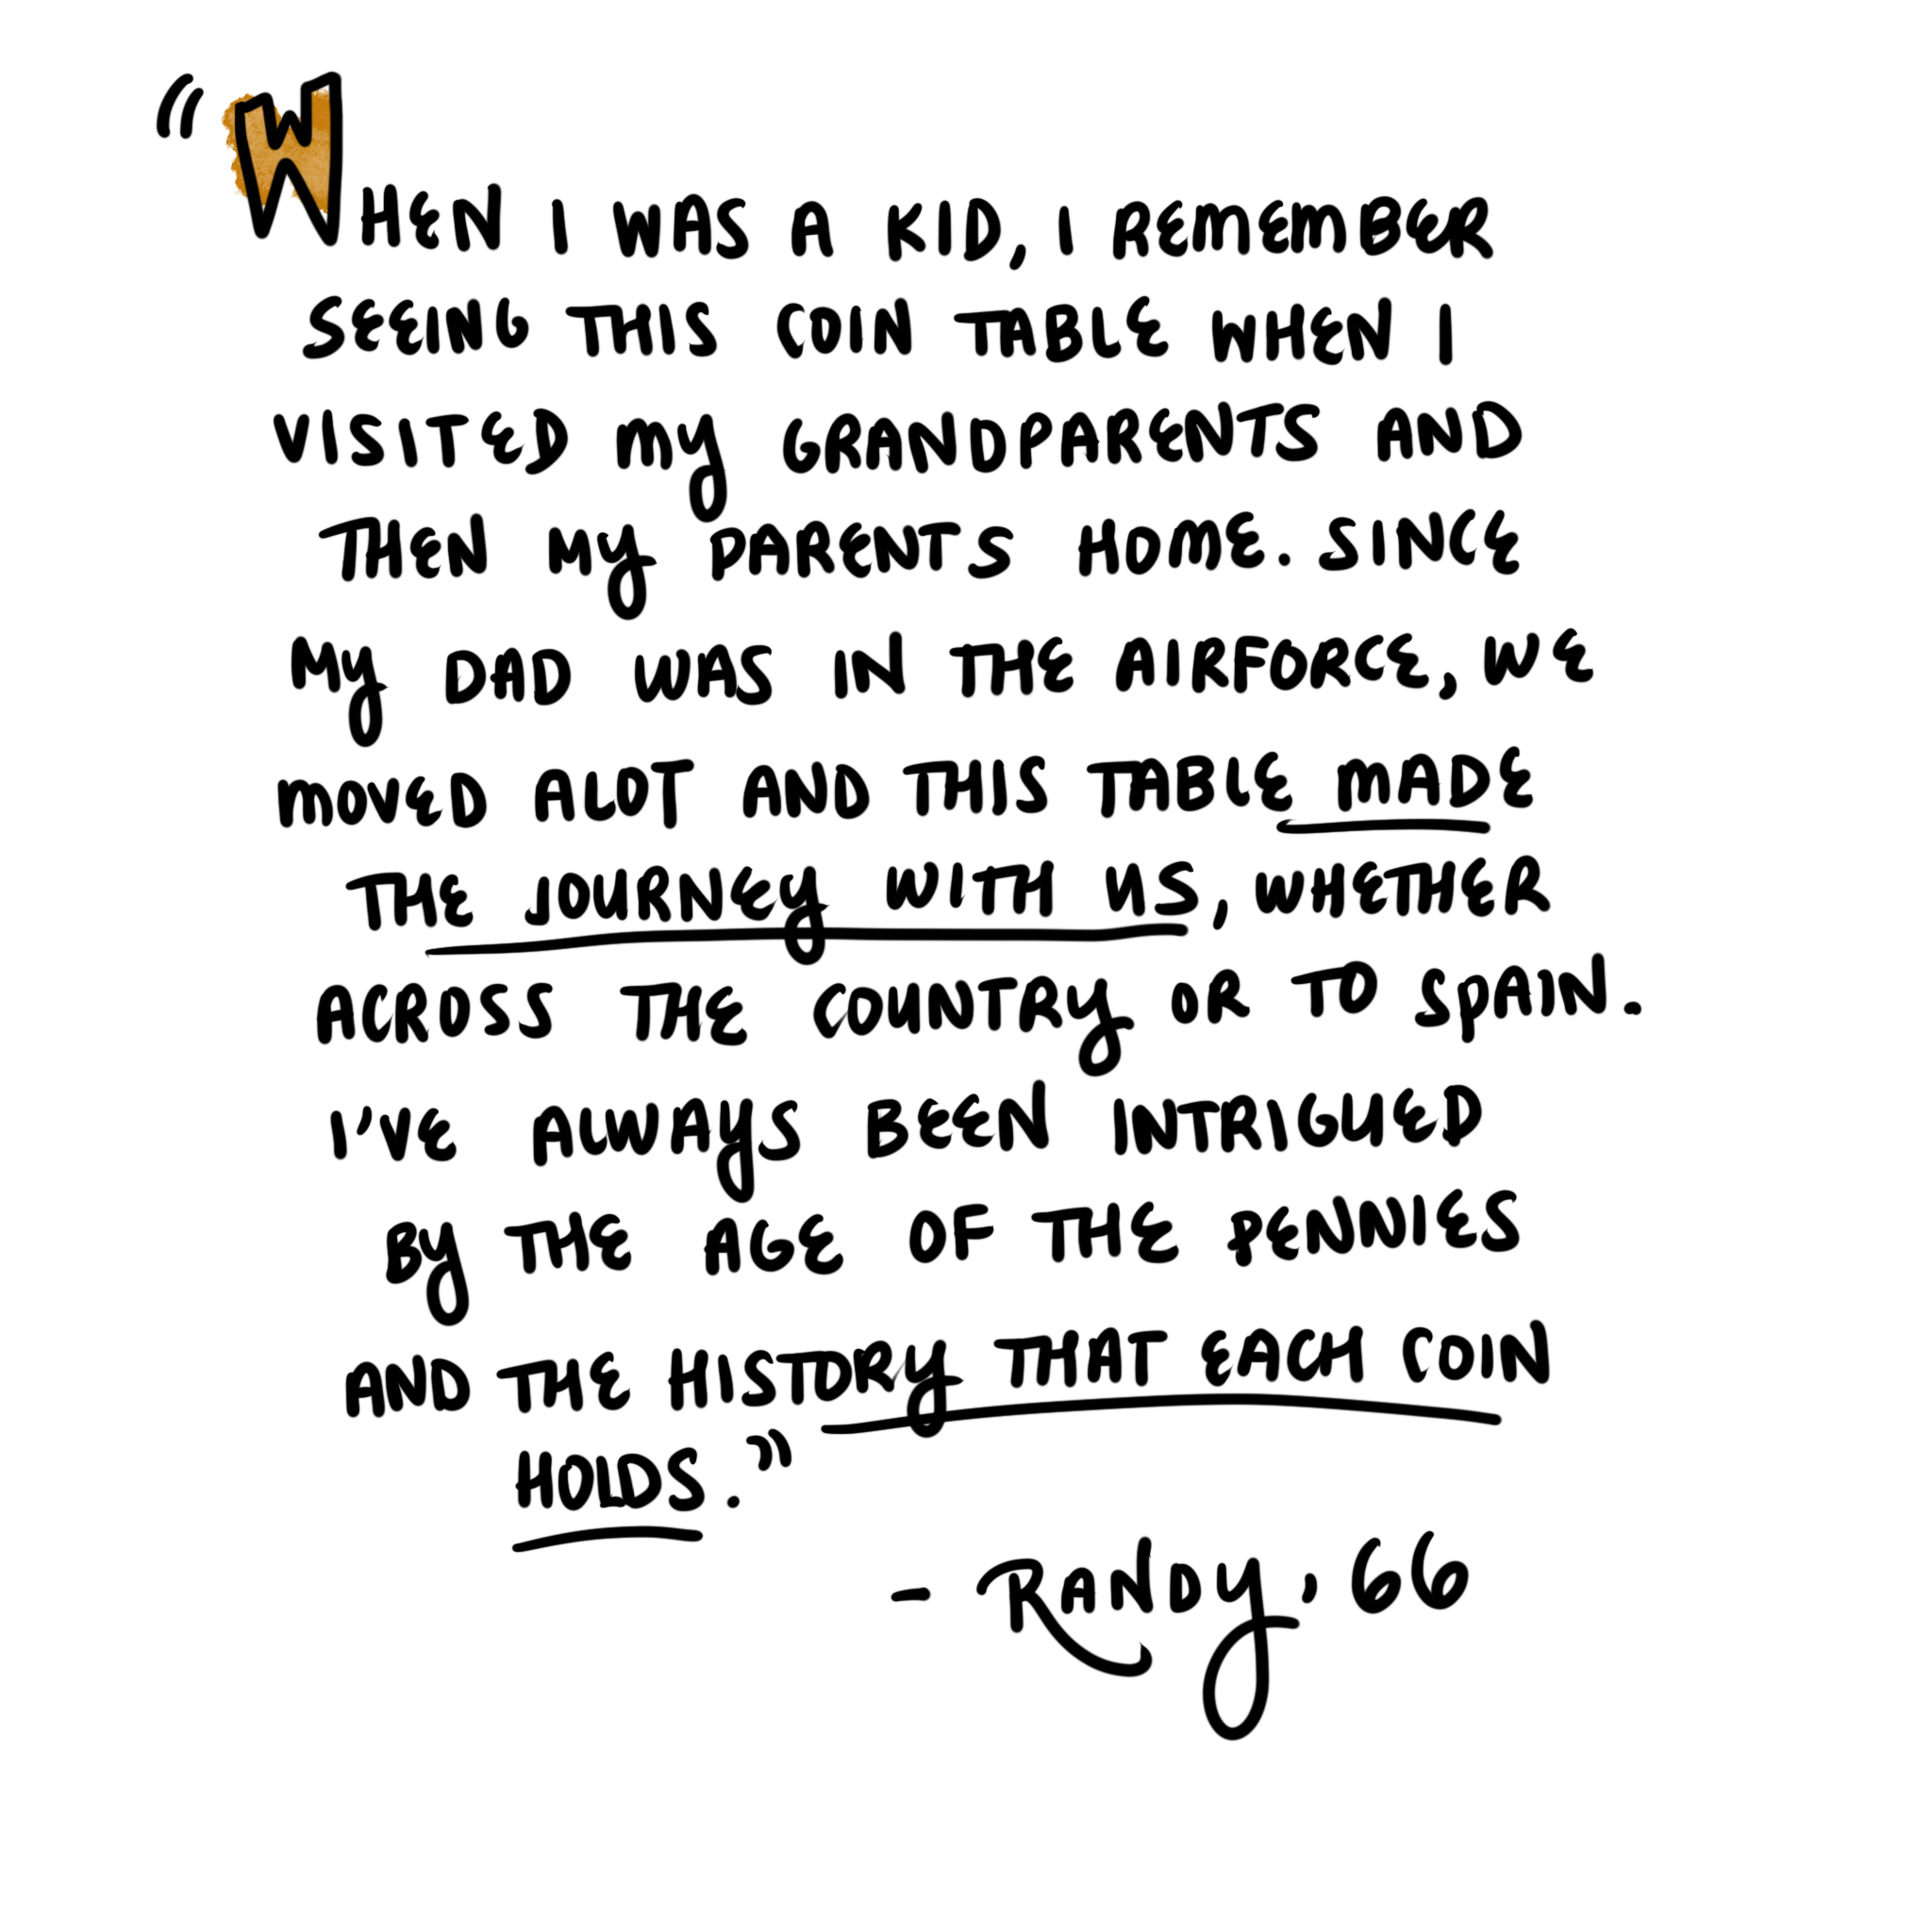 "WHEN I WAS A KID, I REMEMBER
SEEING THIS COIN TABLE WHEN I
VISITED MY GRANDPARENTS AND
THEN MY PARENTS HOME. SINCE
MY DAD WAS IN THE AIRFORCE, WE
MOVED ALOT AND THIS TABLE MADE
THE JOURNEY WITH US, WHETHER
ACROSS THE COUNTRY OR TO SPAIN.
I'VE ALWAYS BEEN INTRIGUED
BY THE AGE OF THE PENNIES
AND THE HISTORY THAT EACH COIN
HOLDS."
- RANDY, 66